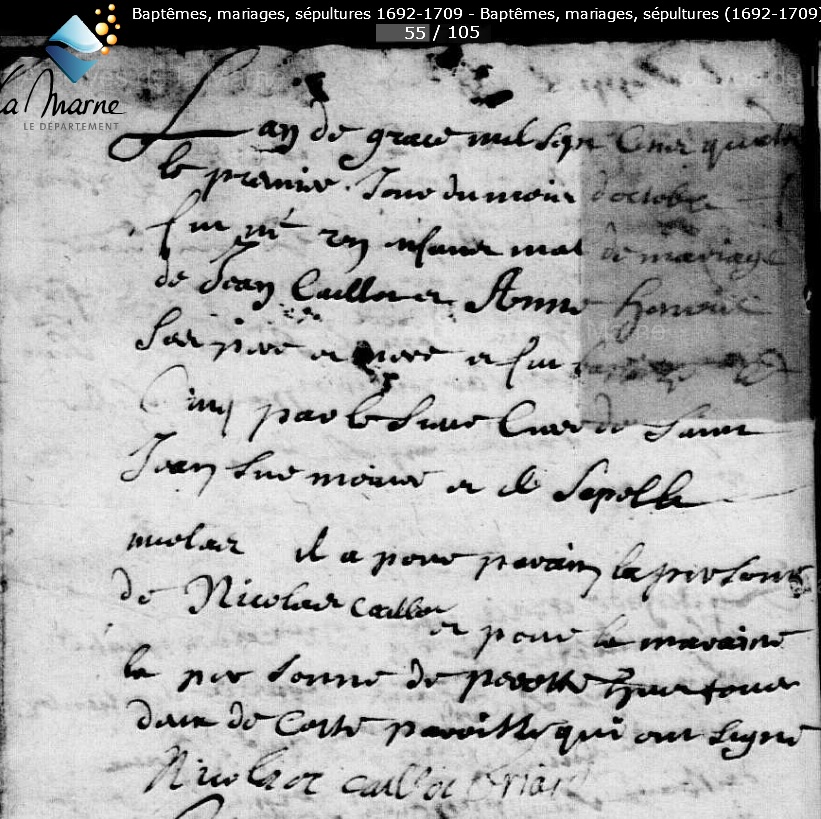 Baptêmes, mariages, sépultures 1692-1709 - Baptêmes, mariages, sépultures (1692-1709)
55 / 105
La Marne
LE DÉPARTEMENT
Lan de grace mil sept Cent quatre
le premier Jour du mois doctobre
fut né un enfant mal de mariage
de Jean Caillot et Anne
Ses pere et mere et fut
par le Curé de Saint
Jean sur moivre et il Sapelle
nicolas il a pour parain la persone
de Nicolas Caillot
et pour la maraine
la personne de perette tous
deux de Cette paroisse qui ont signé
Nicolas caillot